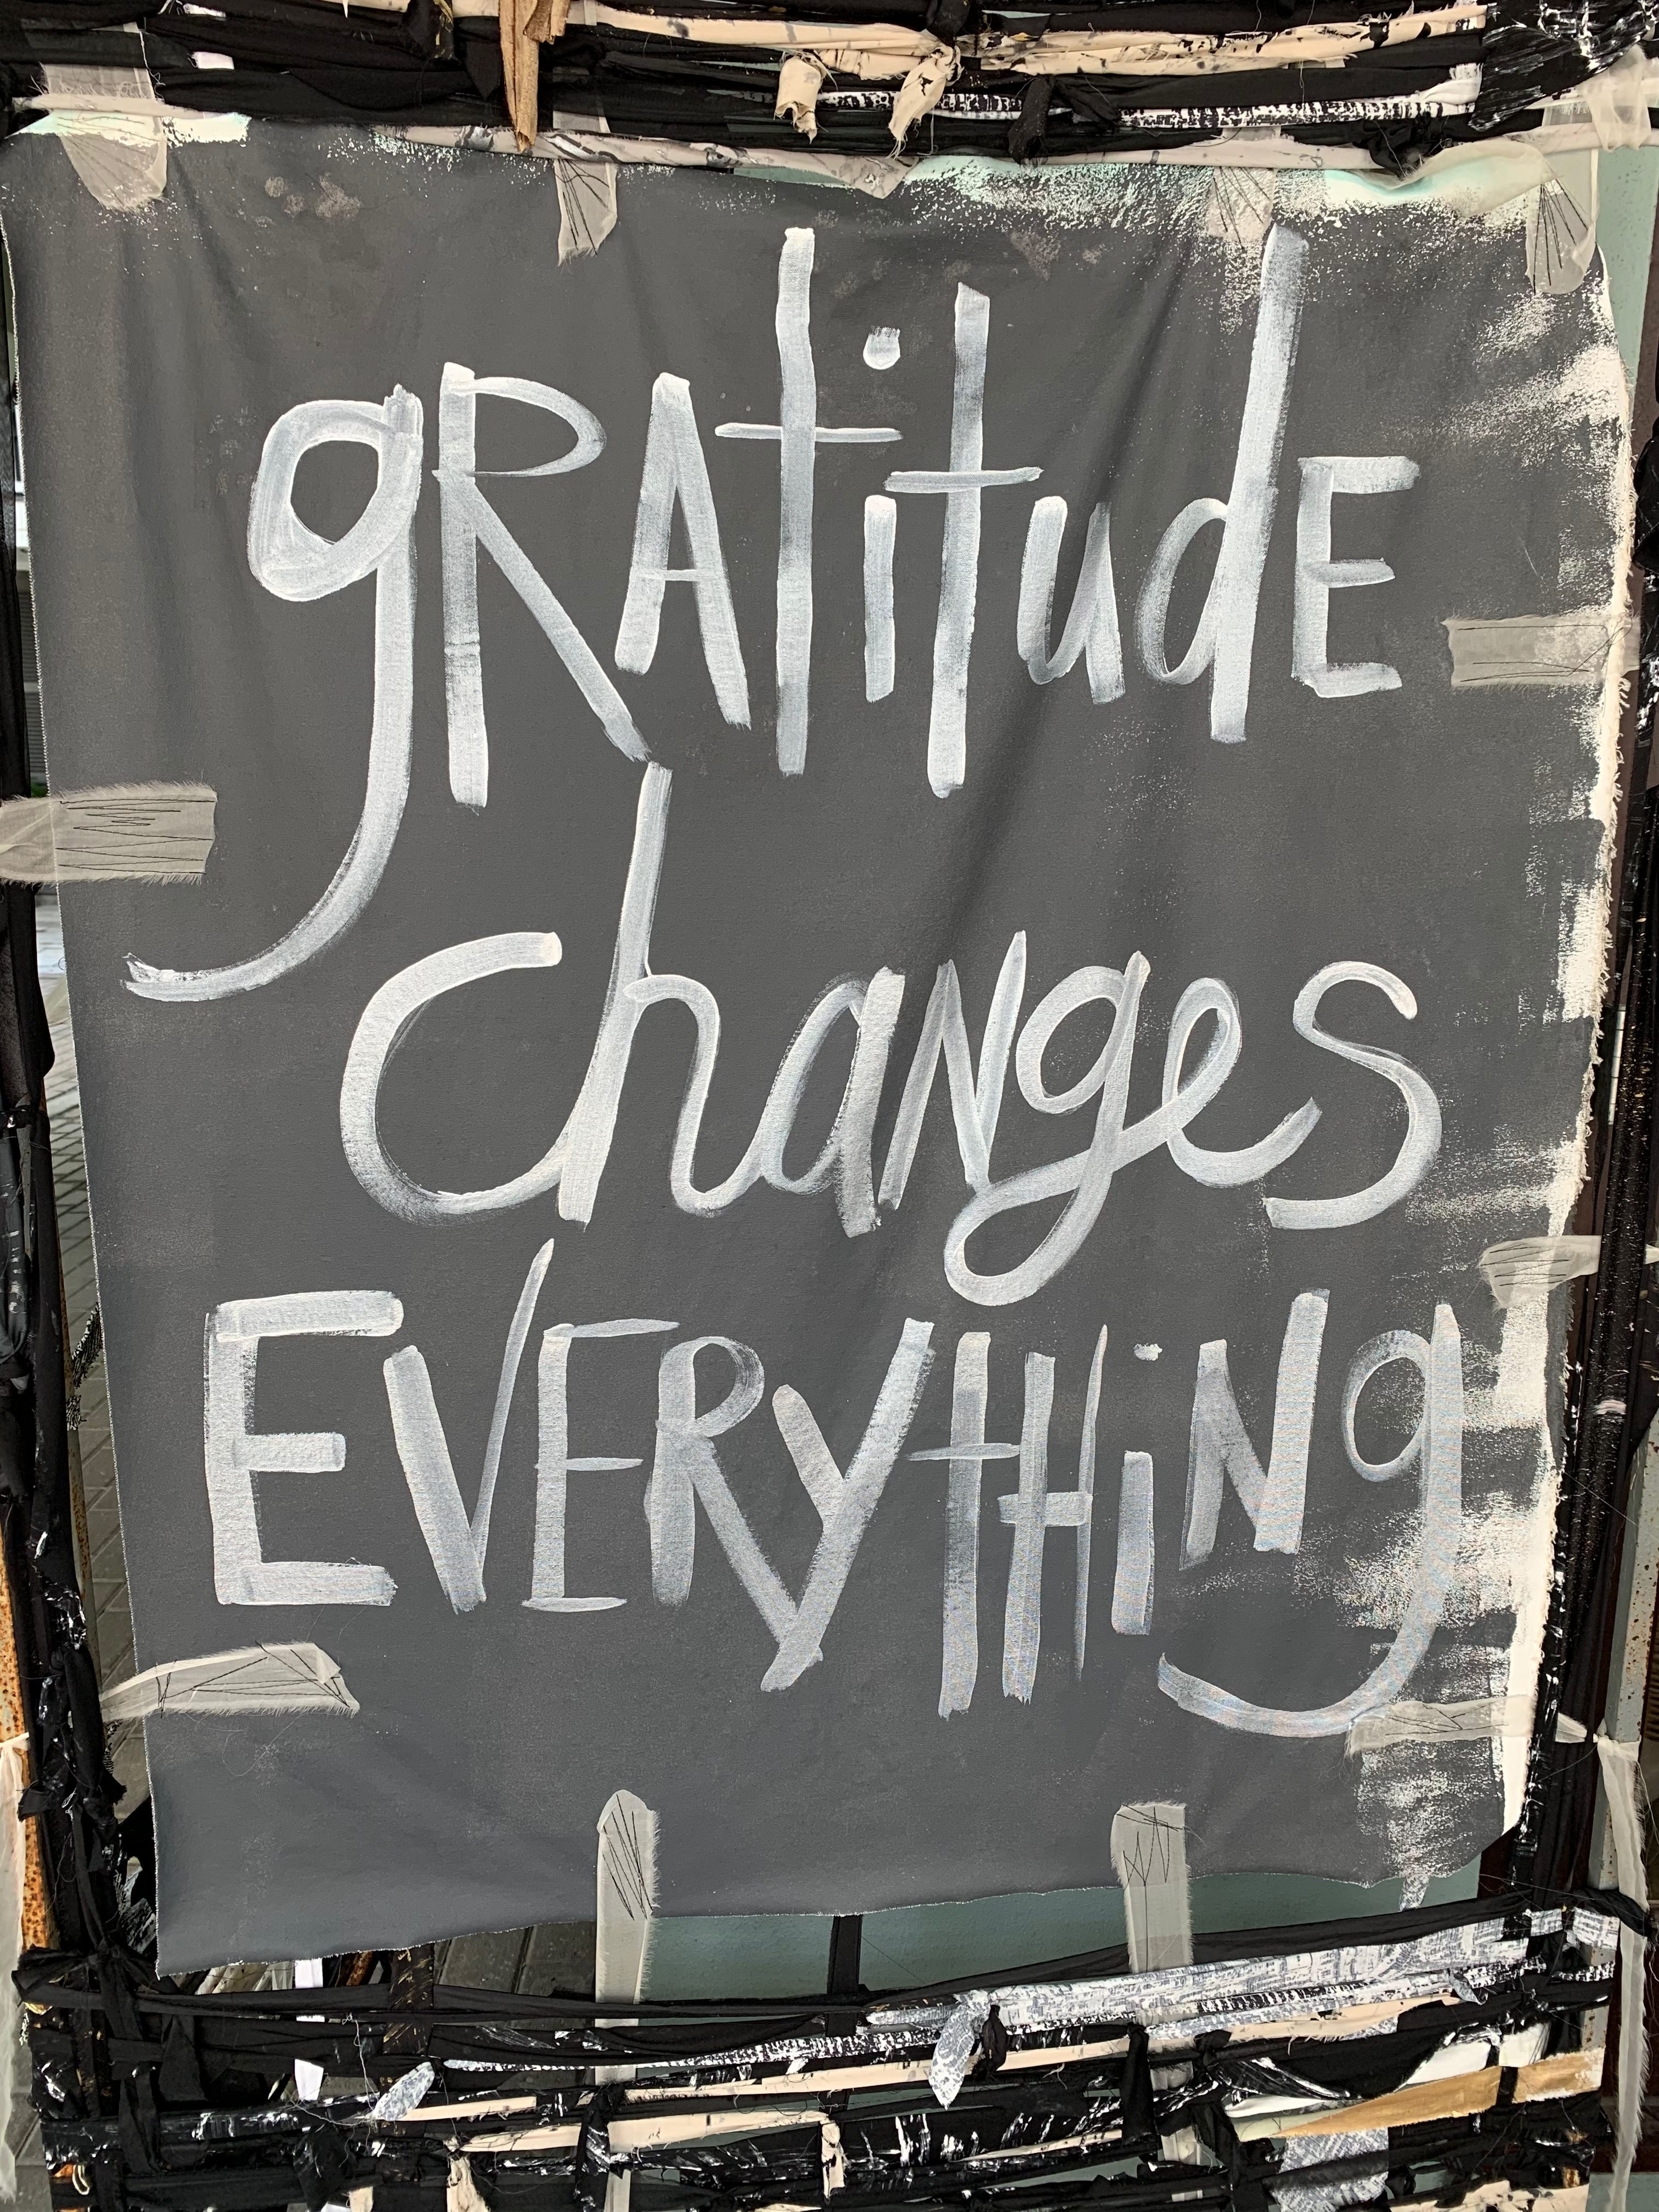 gRAtitudE
changes
EVERYtHiNg